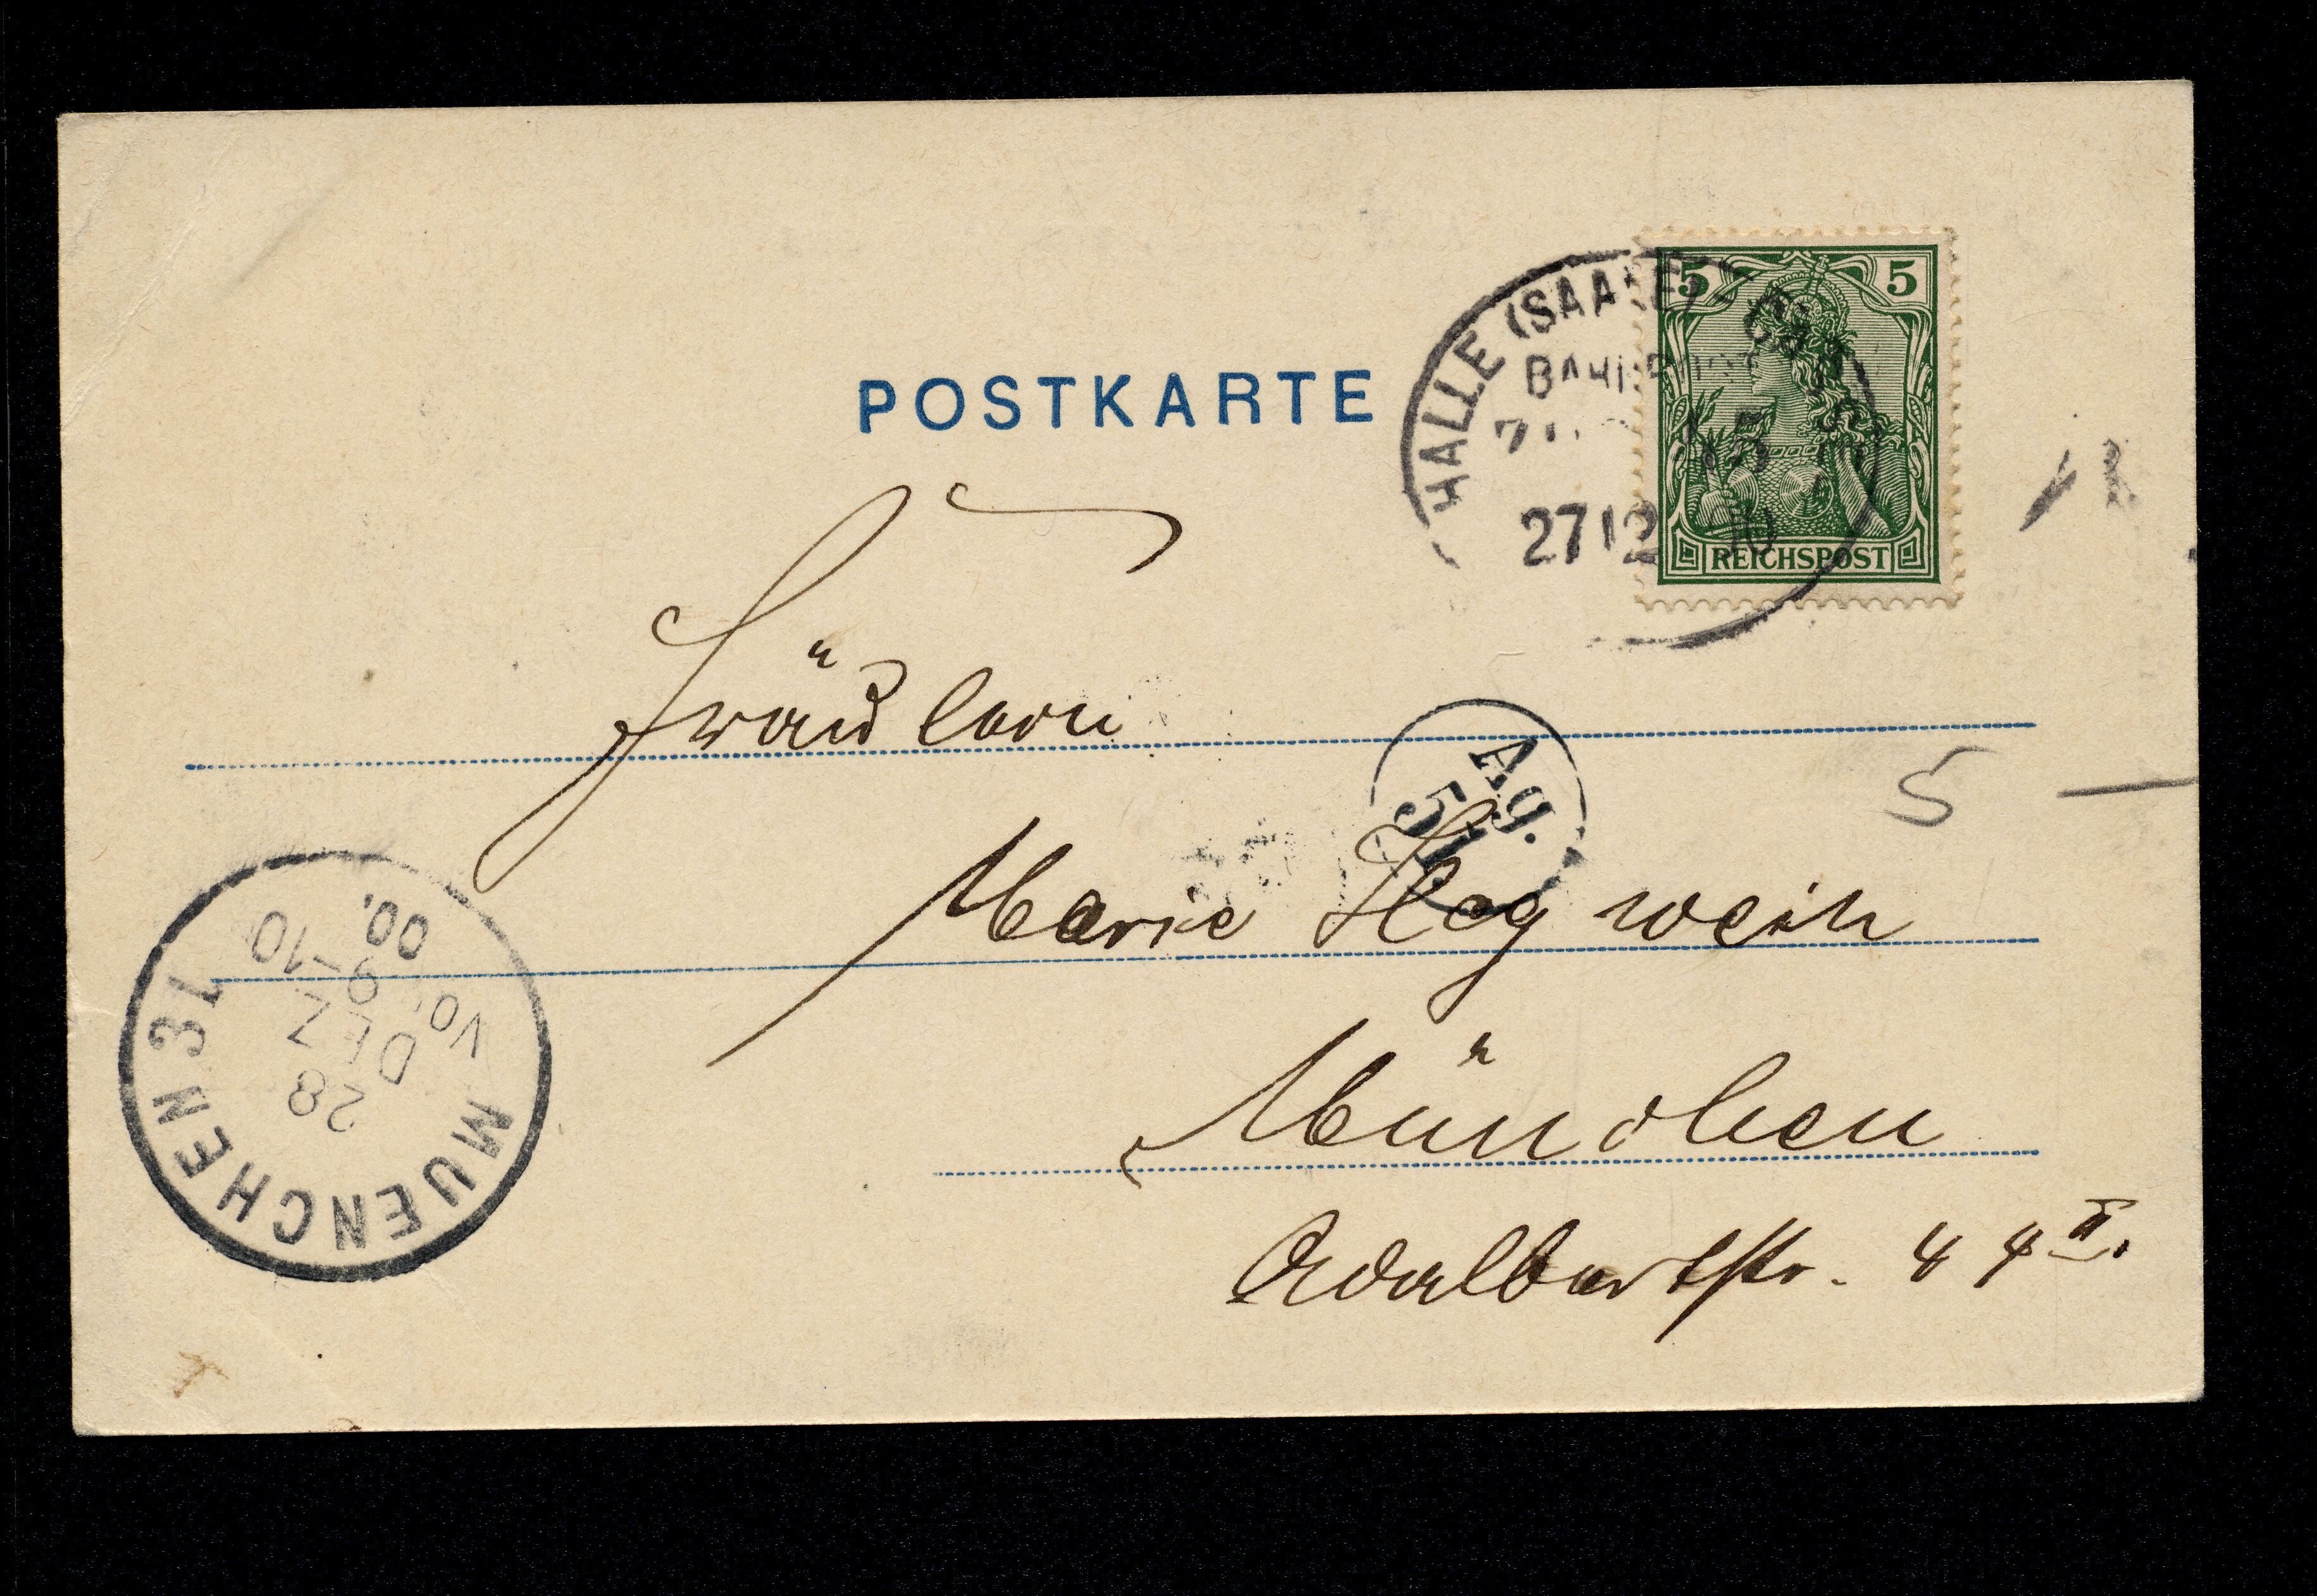 POSTKARTE
HALLE (SAALE)
BAHNPOST
27 12
5 5
REICHSPOST
Fräulein
Ag.
51
5 —
Marie Hegwein
München
Adalbertstr. 44 II.
MUENCHEN 31
28
DEZ
Vor. 9-10
00.